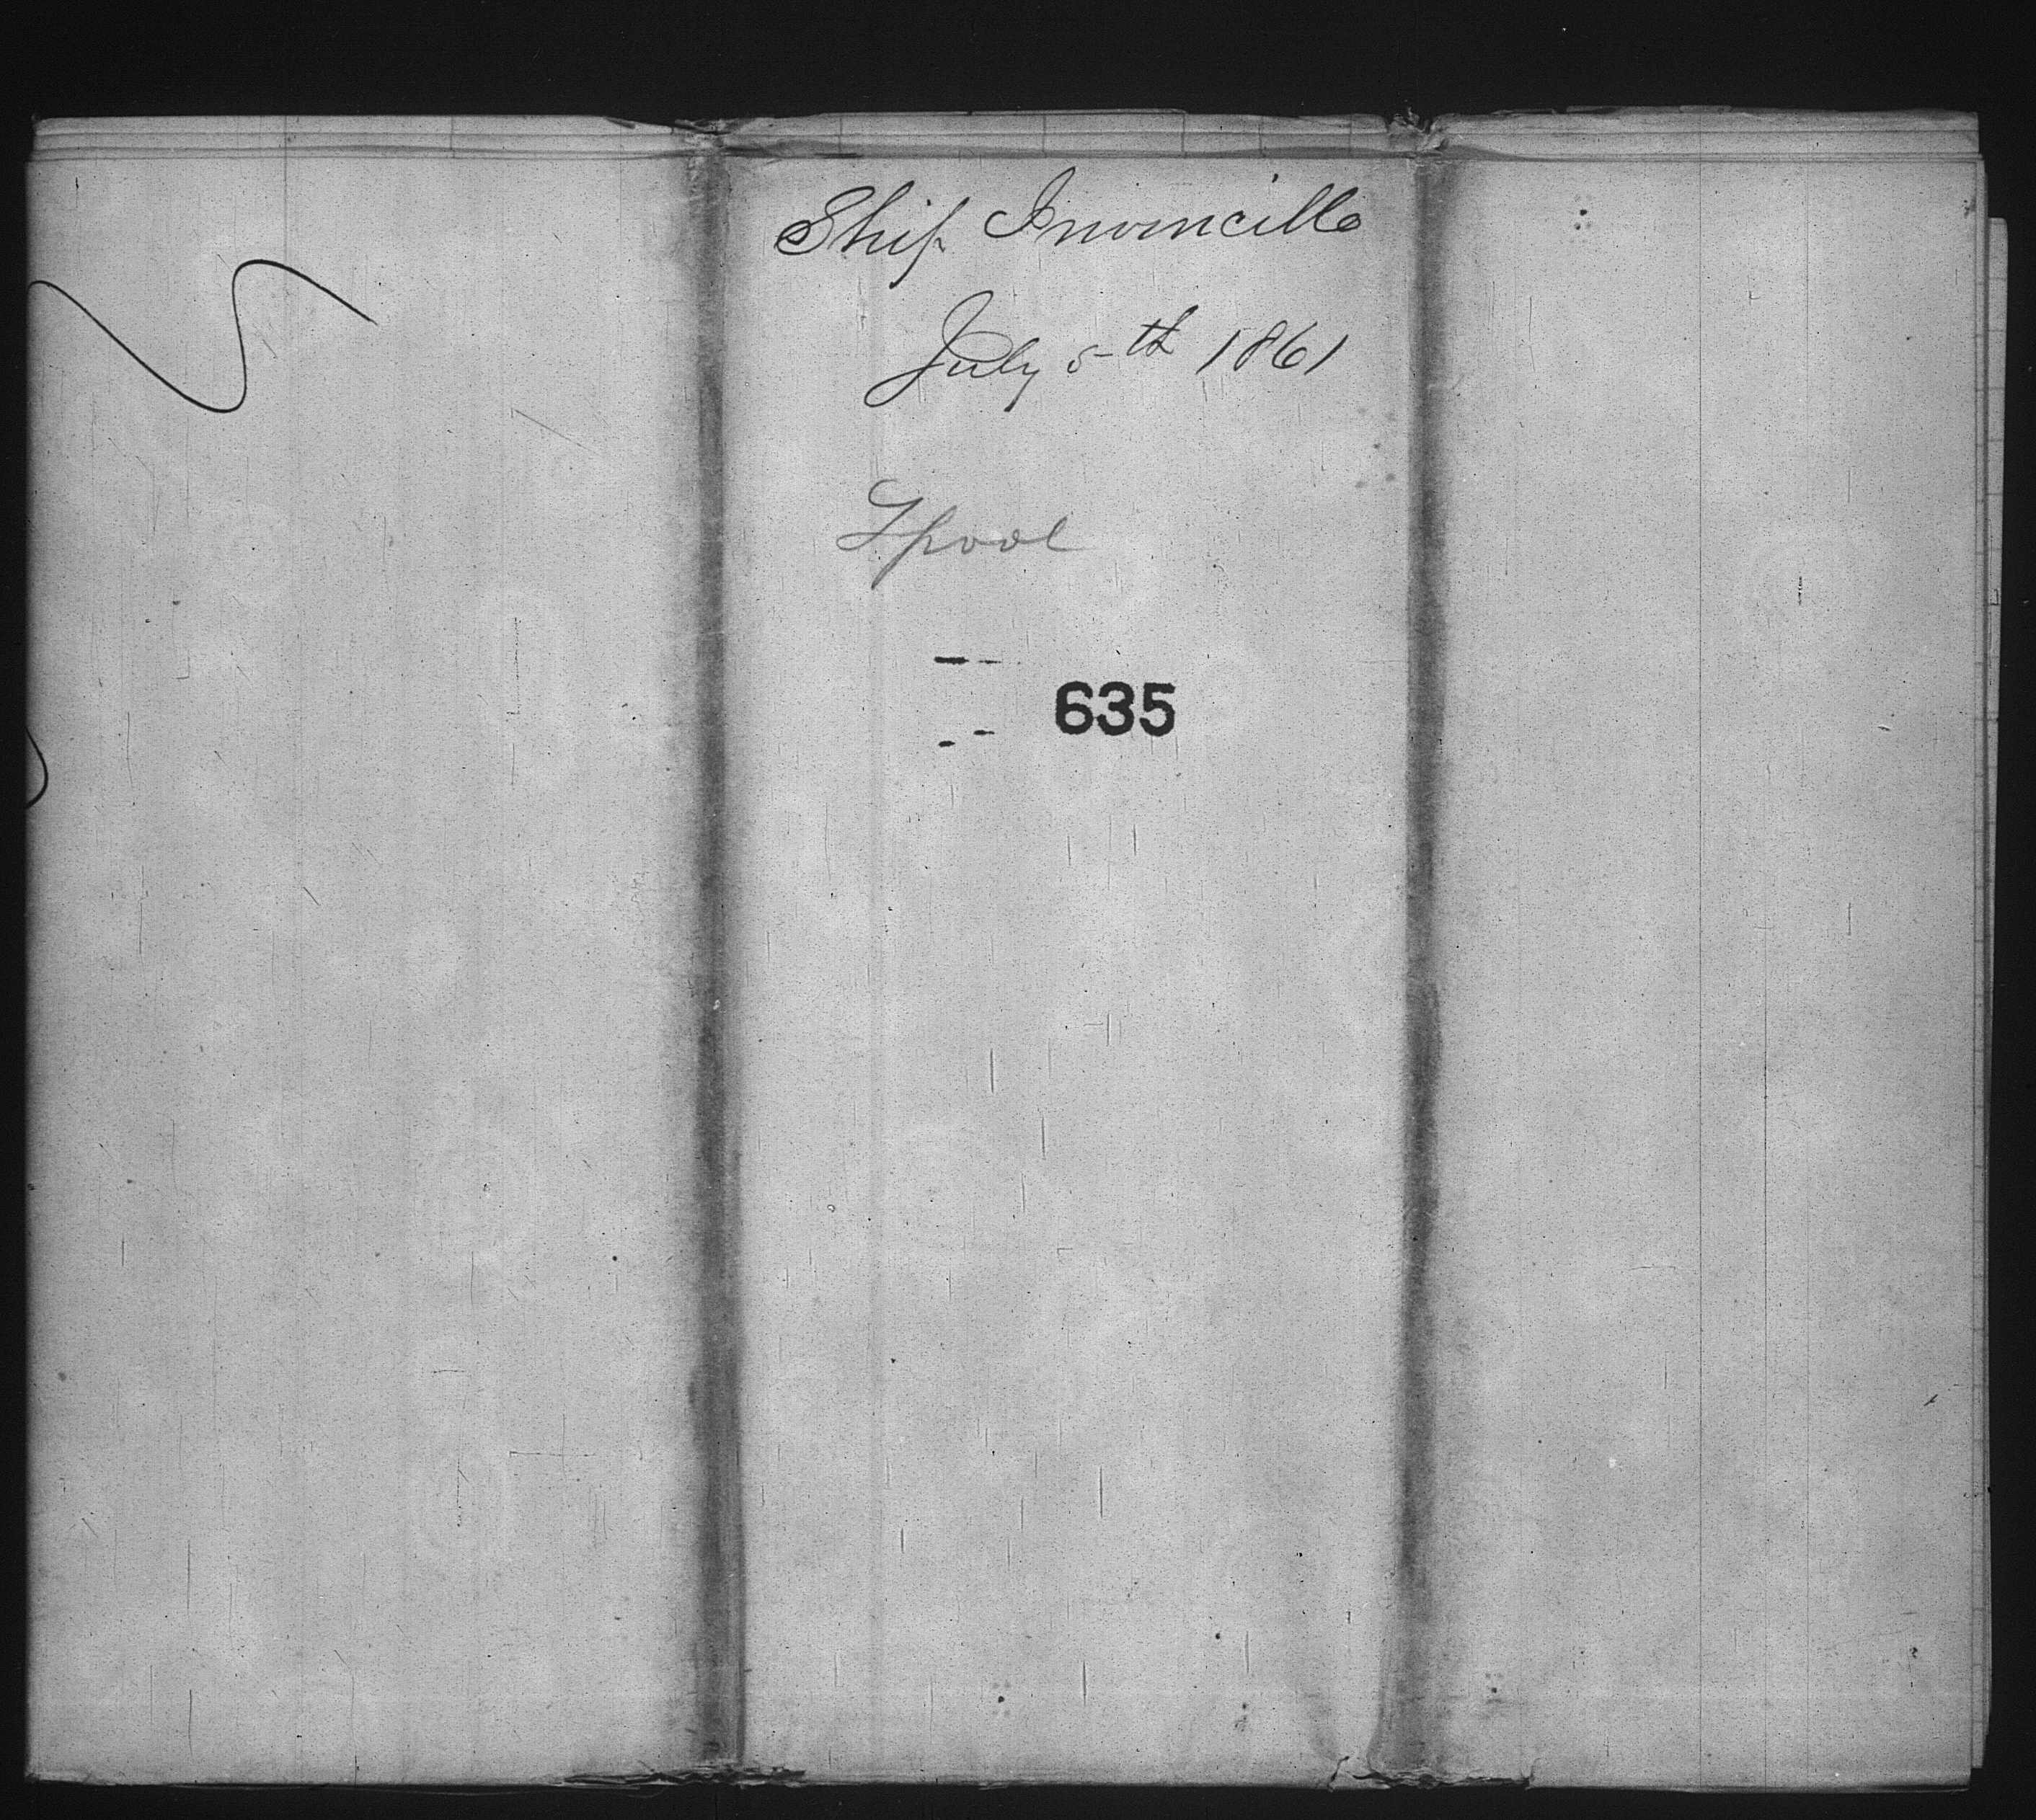 Ship Invincible
July 5th 1861
Lpool
635